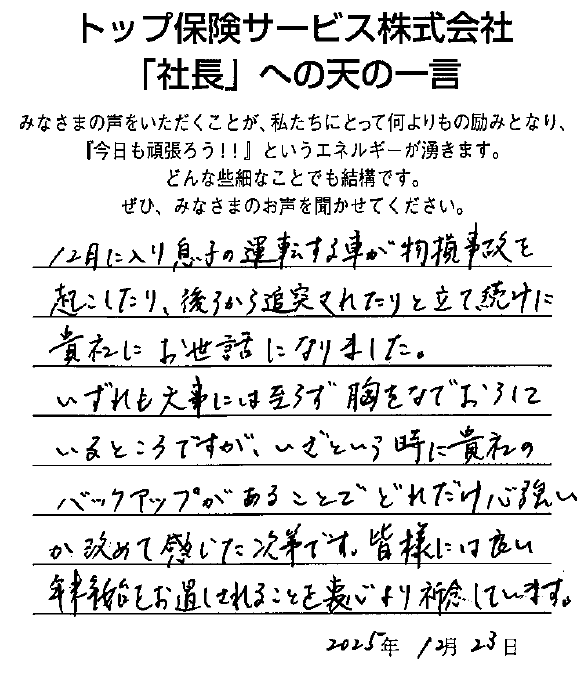 トップ保険サービス株式会社
「社長」への天の一言
みなさまの声をいただくことが、私たちにとって何よりもの励みとなり、
『今日も頑張ろう！！』というエネルギーが湧きます。
どんな些細なことでも結構です。
ぜひ、みなさまのお声を聞かせてください。
12月に入り息子の運転する車が物損事故を
起こしたり、後ろから追突されたりと立て続けに
貴社にお世話になりました。
いずれも大事には至らず胸をなでおろして
いるところですが、いざという時に貴社の
バックアップがあることでどれだけ心強い
か改めて感じた次第です。皆様には良い
年末年始をお過しされることを衷心より祈念しています。
2025年 12月 23日